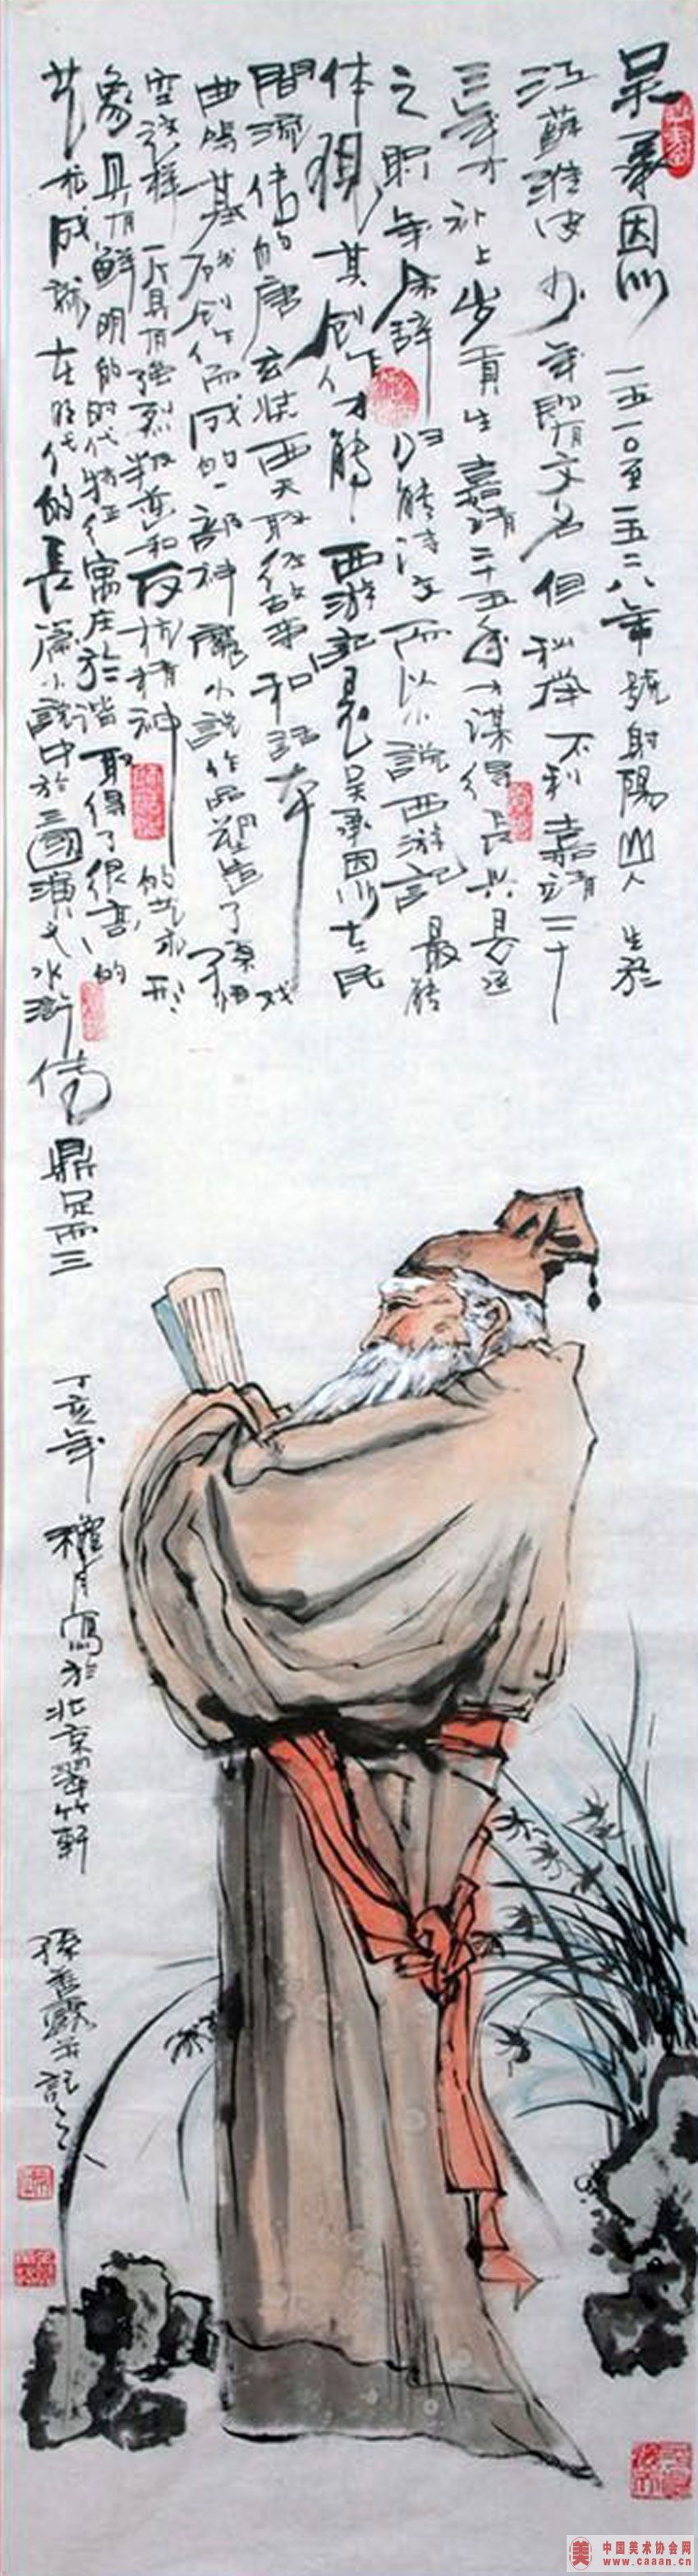 吴承恩 一五一〇至一五八二年 號射陽山人 生於
江蘇淮安 少年即有文名 但科举不利 嘉靖二十
三年才补上岁貢生 嘉靖二十五年才谋得長兴县丞
之职 年余辞归 能诗文 而以小說西游記 最能
体现其创作才能 西游記是吴承恩在民
間流传的唐玄奘西天取经故事和話本 戏
曲的基础创作而成的一部神魔小說 作品塑造了孫悟
空這样一个具有强烈叛逆和反抗精神的艺术形
象 具有鮮明的时代特征 寓庄於谐 取得了很高的
艺术成就 在明代的長篇小說中於三國演义 水浒传 鼎足而三
丁亥年 穐月寫於北京翠竹軒
孫 并記之
中国美术协会网
www.caaan.cn